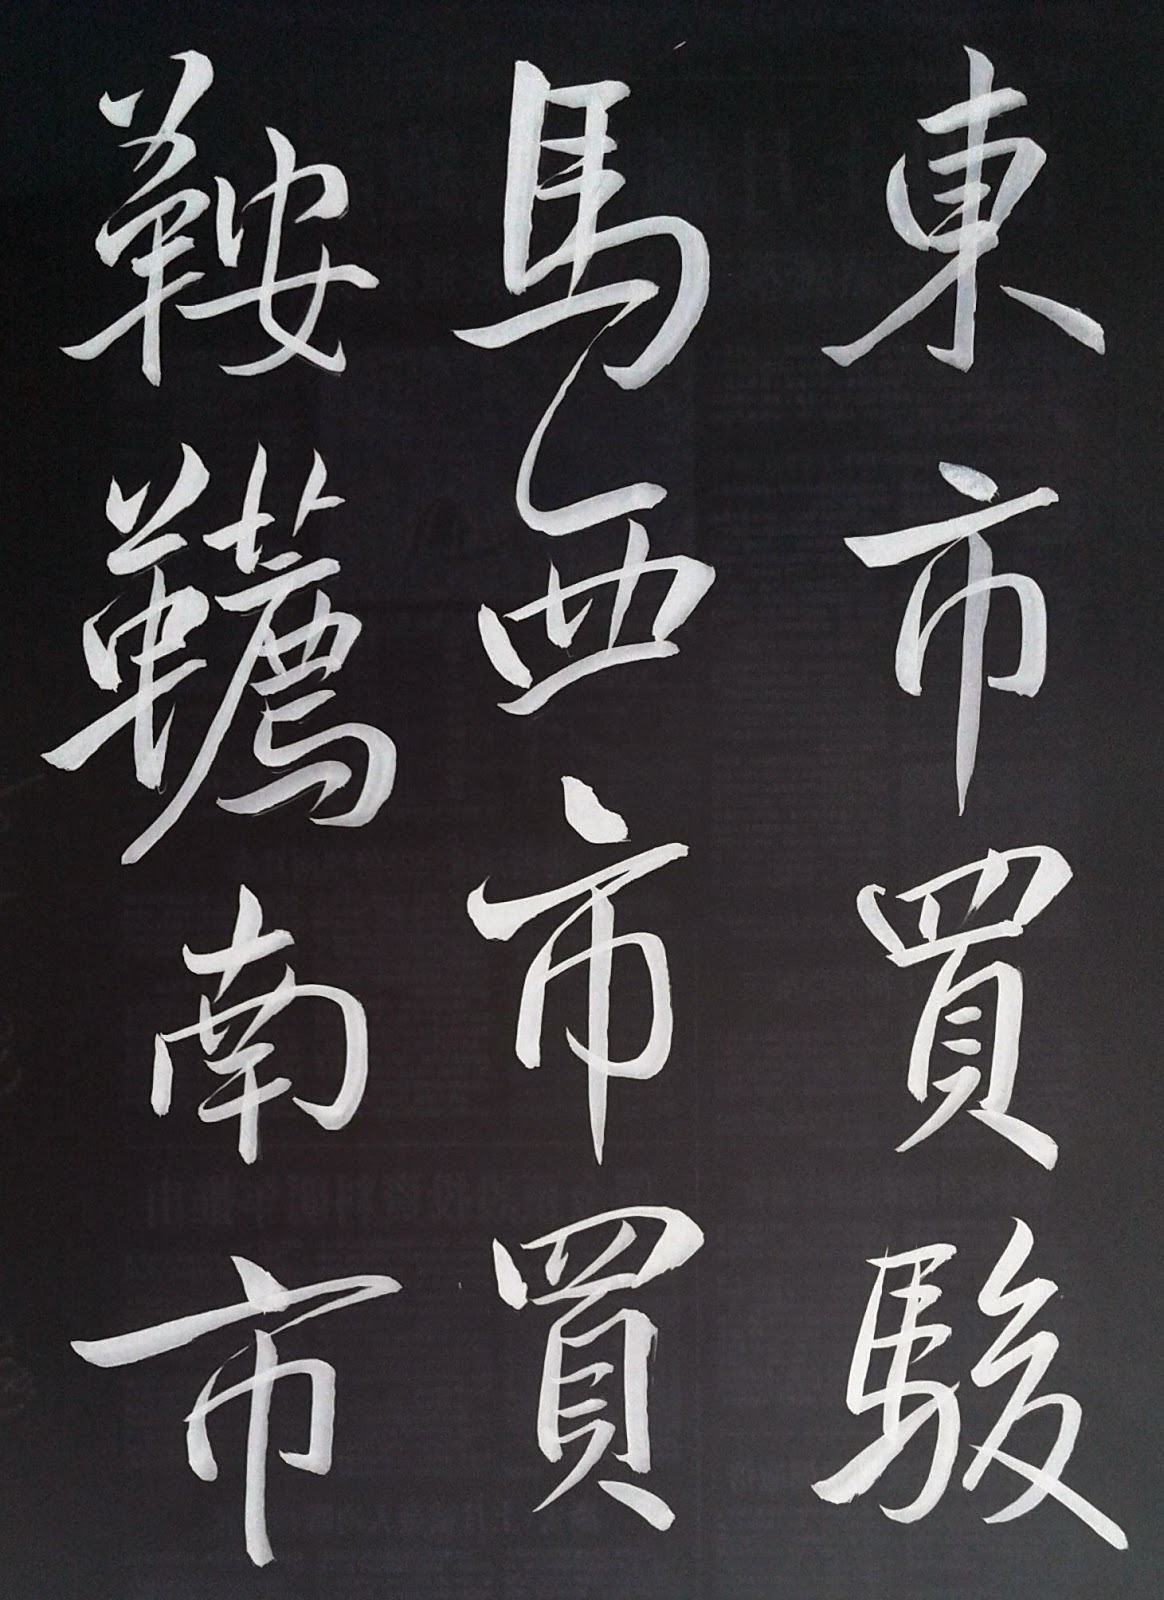 東市買駿
馬西市買
鞍韉南市